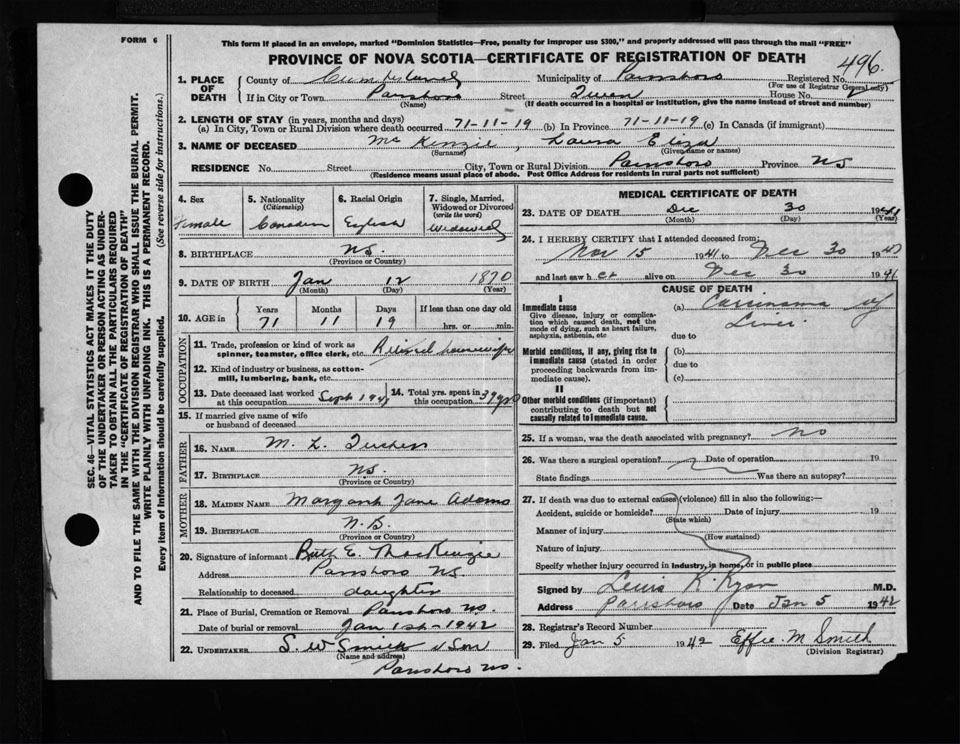 FORM 6
This form if placed in an envelope, marked "Dominion Statistics—Free, penalty for improper use $300," and properly addressed will pass through the mail "FREE"
PROVINCE OF NOVA SCOTIA—CERTIFICATE OF REGISTRATION OF DEATH
496
1. PLACE OF DEATH County of Cumberland Municipality of Parrsboro Registered No.
(For use of Registrar General only)
If in City or Town Parrsboro Street Queen House No.
(Name) (If death occurred in a hospital or institution, give the name instead of street and number)
2. LENGTH OF STAY (in years, months and days)
(a) In City, Town or Rural Division where death occurred 71-11-19 (b) In Province 71-11-19 (c) In Canada (if immigrant)
3. NAME OF DECEASED McKenzie, Laura Eliza
(Surname) (Given name or names)
RESIDENCE No. Street City, Town or Rural Division Parrsboro Province NS
(Residence means usual place of abode. Post Office Address for residents in rural parts not sufficient)
4. Sex Female
5. Nationality (Citizenship) Canadian
6. Racial Origin English
7. Single, Married, Widowed or Divorced (write the word) Widowed
8. BIRTHPLACE NS.
(Province or Country)
9. DATE OF BIRTH Jan 12 1870
(Month) (Day) (Year)
10. AGE in Years Months Days If less than one day old
71 11 19 hrs. or min.
OCCUPATION
11. Trade, profession or kind of work as spinner, teamster, office clerk, etc. Retired housewife
12. Kind of industry or business, as cotton-mill, lumbering, bank, etc.
13. Date deceased last worked at this occupation Sept 194
14. Total yrs. spent in this occupation 39 yrs
15. If married give name of wife or husband of deceased
FATHER
16. NAME M. L. Tucker
17. BIRTHPLACE NS.
(Province or Country)
MOTHER
18. MAIDEN NAME Margaret Jane Adams
19. BIRTHPLACE N.S.
(Province or Country)
20. Signature of informant Ruth E. MacKenzie
Address Parrsboro NS.
Relationship to deceased daughter
21. Place of Burial, Cremation or Removal Parrsboro NS.
Date of burial or removal Jan 1st - 1942
22. UNDERTAKER S. W Smith & Son
(Name and address)
Parrsboro NS.
MEDICAL CERTIFICATE OF DEATH
23. DATE OF DEATH Dec 30 1941
(Month) (Day) (Year)
24. I HEREBY CERTIFY that I attended deceased from:
Nov 15 1941 to Dec 30 194
and last saw her alive on Dec 30 1941
CAUSE OF DEATH
I
Immediate cause
Give disease, injury or complication which caused death, not the mode of dying, such as heart failure, asphyxia, asthenia, etc
(a) Carcinoma of Liver
due to
Morbid conditions, if any, giving rise to immediate cause (stated in order proceeding backwards from immediate cause).
(b)
due to
(c)
II
Other morbid conditions (if important) contributing to death but not causally related to immediate cause.
25. If a woman, was the death associated with pregnancy? no
26. Was there a surgical operation? Date of operation 19
State findings Was there an autopsy?
27. If death was due to external causes (violence) fill in also the following:—
Accident, suicide or homicide? Date of injury 19
(State which)
Manner of injury
(How sustained)
Nature of injury
Specify whether injury occurred in industry, in home, or in public place
Signed by Lewis K. Ryan M.D.
Address Parrsboro Date Jan 5 1942
28. Registrar's Record Number
29. Filed Jan 5 1942 Effie M Smith
(Division Registrar)
SEC. 46—VITAL STATISTICS ACT MAKES IT THE DUTY
OF THE UNDERTAKER OR PERSON ACTING AS UNDER-
TAKER TO OBTAIN ALL THE PARTICULARS REQUIRED
IN THE "CERTIFICATE OF REGISTRATION OF DEATH"
AND TO FILE THE SAME WITH THE DIVISION REGISTRAR WHO SHALL ISSUE THE BURIAL PERMIT.
WRITE PLAINLY WITH UNFADING INK. THIS IS A PERMANENT RECORD.
Every item of Information should be carefully supplied. (See reverse side for instructions.)